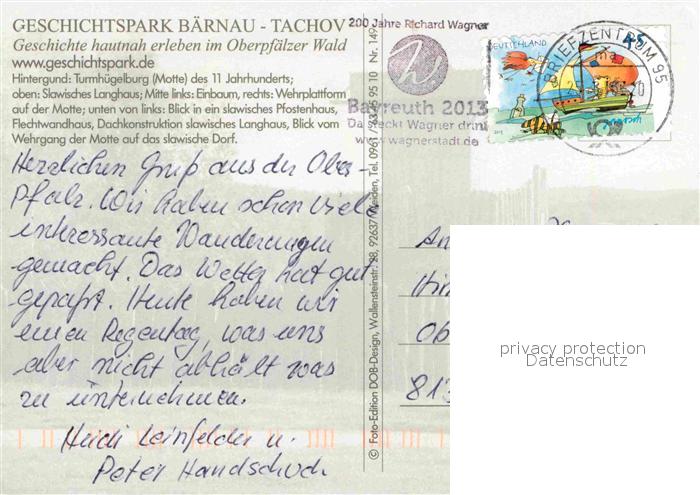 GESCHICHTSPARK BÄRNAU - TACHOV
Geschichte hautnah erleben im Oberpfälzer Wald
www.geschichtspark.de
Hintergund: Turmhügelburg (Motte) des 11 Jahrhunderts;
oben: Slawisches Langhaus; Mitte links: Einbaum, rechts: Wehrplattform
auf der Motte; unten von links: Blick in ein slawisches Pfostenhaus,
Flechtwandhaus, Dachkonstruktion slawisches Langhaus, Blick vom
Wehrgang der Motte auf das slawische Dorf.
Herzlichen Gruß aus der Ober-
pfalz. Wir haben schon viele
interessante Wanderungen
gemacht. Das Wetter hat gut
gepaßt. Heute haben wir
einen Regentag, was uns
aber nicht abhält was
zu unternehmen.
Heidi Leinfelder u.
Peter Handschuch
© Foto-Edition DOB-Design, Wallensteinstr. 28, 92637 Weiden, Tel. 0961 / 95 10 Nr. 149
200 Jahre Richard Wagner
Bayreuth 2013
Da steckt Wagner drin!
www.wagnerstadt.de
DEUTSCHLAND
45
BRIEFZENTRUM 95
An
Ob
813
privacy protection
Datenschutz